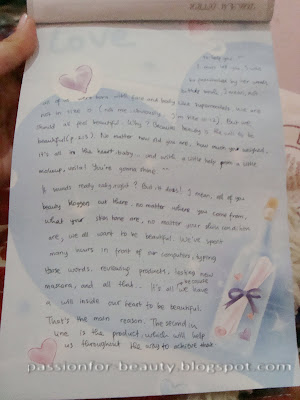 all of us were born with face and body like supermodels. and are
not in size 0 (no me obviously. I'm size 12). But we
should all feel beautiful. Why? Because beauty is the will to be
beautiful (p. 213). No matter how old you are, how much you weighed,
it's all in the heart, baby.. and with a little help from a little
makeup, voila! You're gonna shine.
It sounds really cheesy, right? But it does! I mean, all of you
beauty bloggers out there.. no matter where you came from,
what your skin tone are, no matter your skin condition
are, we all want to be beautiful. We've spent
many hours in front of our computers, typing
those words, reviewing products, looking new
mascara, and all that.. It's all because we have
a will inside our heart to be beautiful.
That's the main reason. The second in
line is the product, which will help
us throughout the way to achieve that
passionfor-beauty.blogspot.com